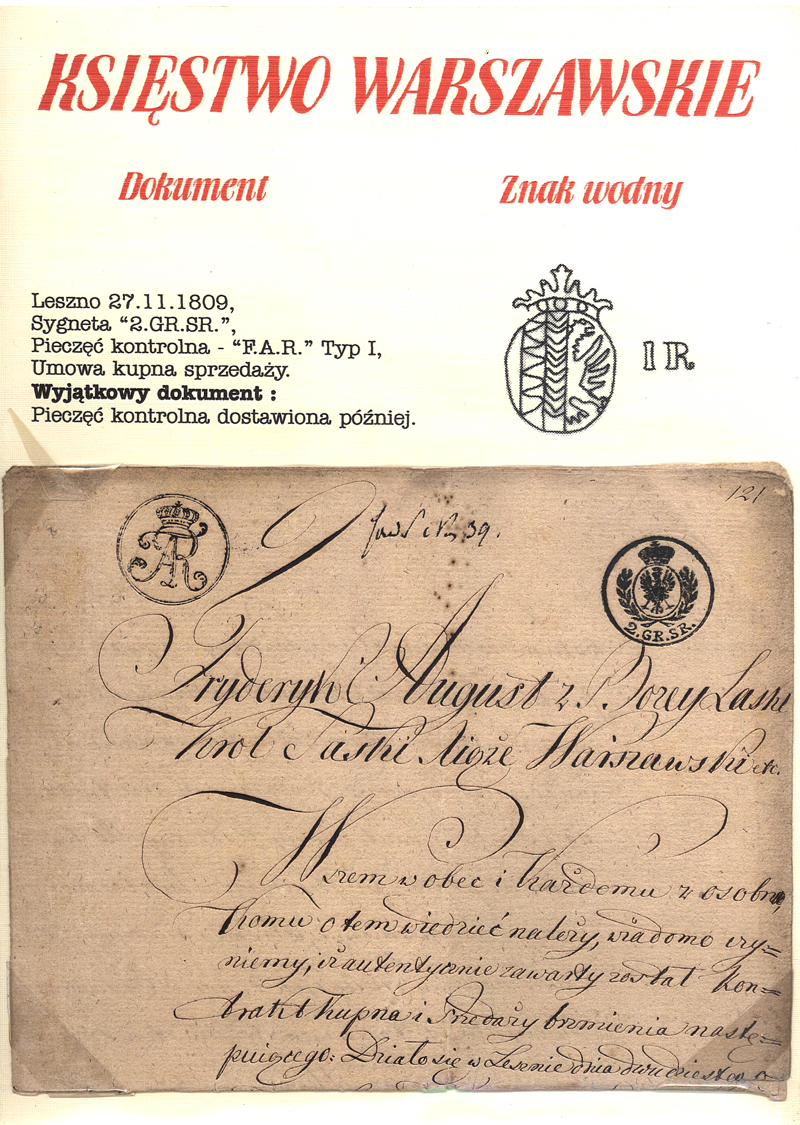 KSIĘSTWO WARSZAWSKIE
Dokument
Znak wodny
Leszno 27.11.1809,
Sygneta “2.GR.SR.”,
Pieczęć kontrolna - “F.A.R.” Typ I,
Umowa kupna sprzedaży.
Wyjątkowy dokument :
Pieczęć kontrolna dostawiona później.
I R
121
39.
FAR
2.GR.SR.
Fryderyk August z Bożey Łaski
Krol Saski Xiąże Warszawski etc.
Wszem w obec i każdemu z osobna,
komu o tem wiedzieć należy, wiadomo czy=
niemy, iż autentycznie zawarty został kon=
trakt kupna i Przedaży brzmienia nastę=
puiącego: Działo się w Lesznie dnia dwudziestego